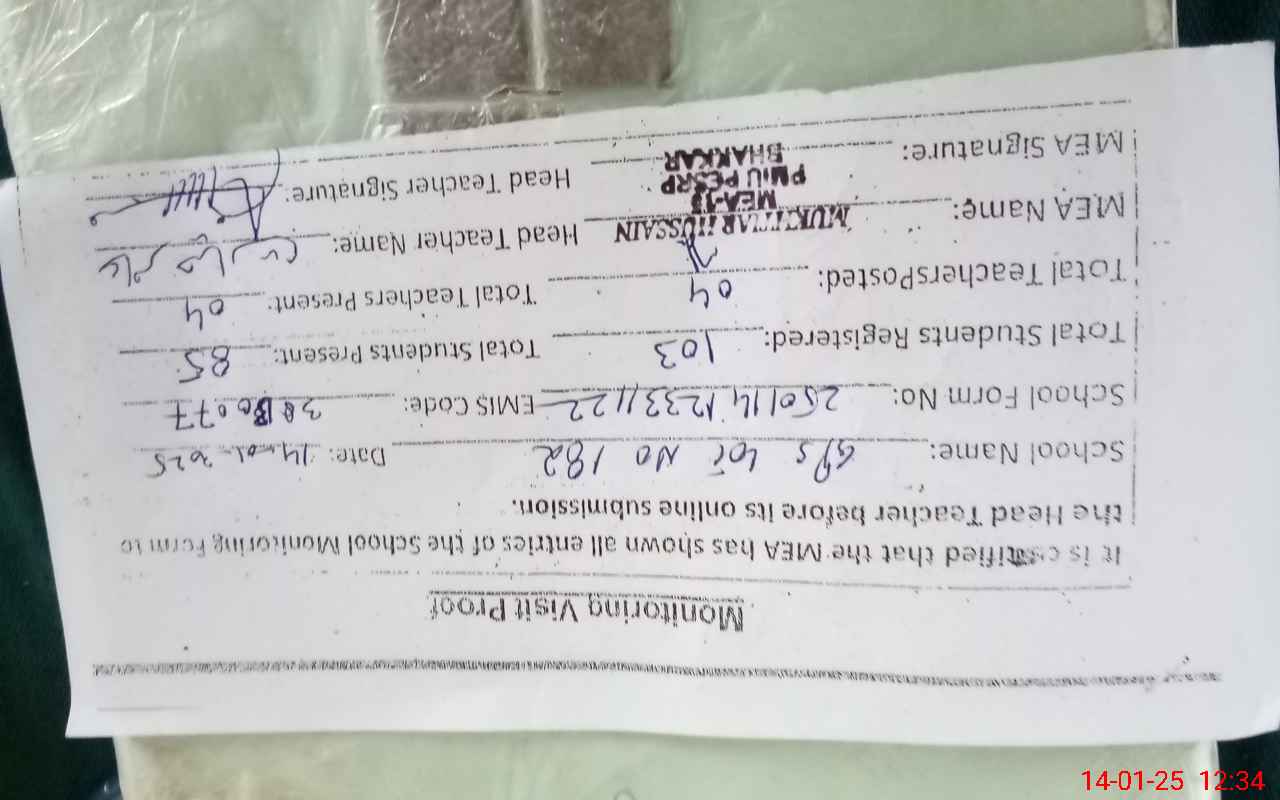 Monitoring Visit Proof
It is certified that the MEA has shown all entries of the School Monitoring Form to
the Head Teacher before its online submission.
School Name: GPS Date: 14-01-2025
School Form No: EMIS Code:
Total Students Registered: 103 Total Students Present: 85
Total TeachersPosted: 04 Total Teachers Present: 04
MEA Name: MUKHTIAR HUSSAIN Head Teacher Name:
MEA-13
PMIU PESRP
BHAKKAR
MEA Signature: Head Teacher Signature:
14-01-25 12:34